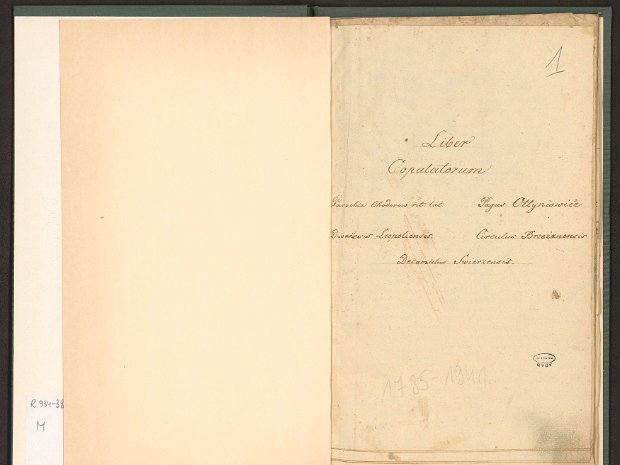 1
Liber
Copulatorum
Parochia Chodorow rit. lat Pagus Ottyniowice
Dioecesis Leopoliensis Circulus Brzezanensis
Decanatus Swierzensis.
1785-1941.
R. 934-38
M